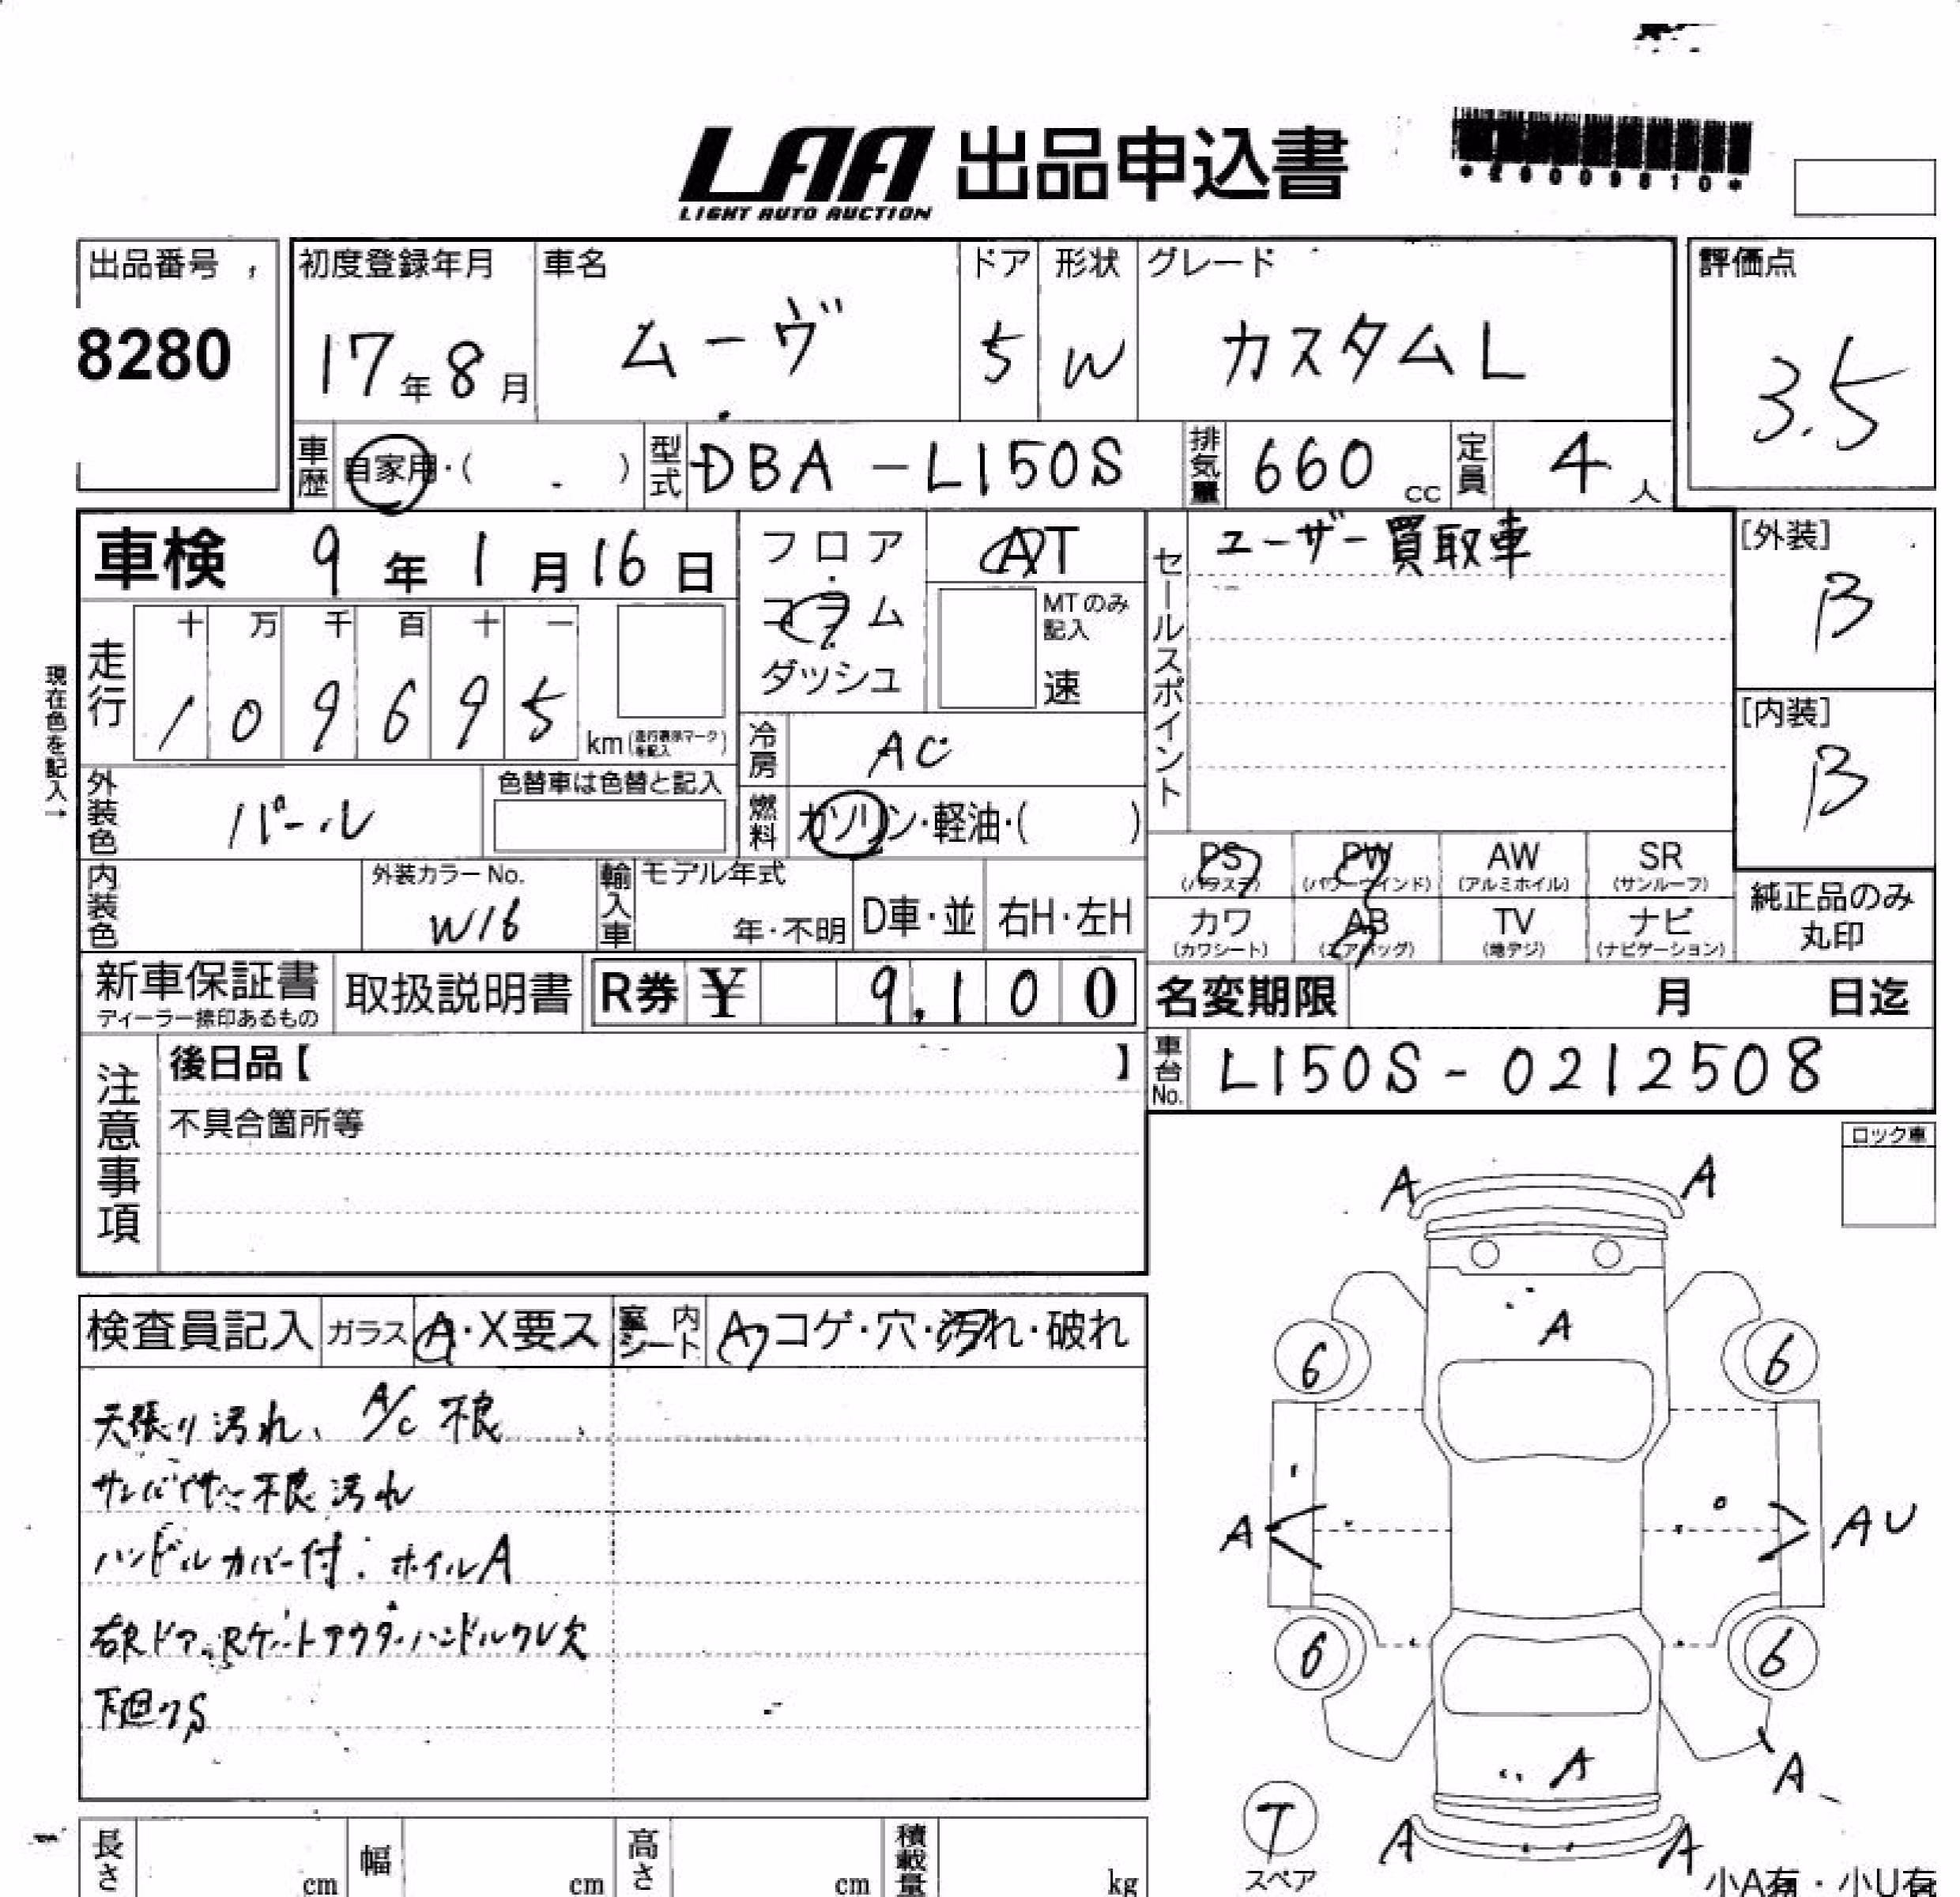 LAA 出品申込書
LIGHT AUTO AUCTION
出品番号
8280
初度登録年月
17年8月
車名
ムーヴ
ドア
5
形状
W
グレード
カスタムL
評価点
3.5
車歴
自家用・( )
型式
DBA-L150S
排気量
660 cc
定員
4人
車検 9年1月16日
現在色を記入→
走行
十 万 千 百 十 一
1 0 9 6 9 5
km (走行表示マークを記入)
フロア
コラム
ダッシュ
AT
MTのみ記入
速
冷房
AC
燃料
ガソリン・軽油・( )
セールスポイント
ユーザー買取車
[外装]
B
[内装]
B
外装色
パール
色替車は色替と記入
内装色
外装カラーNo.
W16
輸入車
モデル年式
年・不明
D車・並
右H・左H
PS
(パワステ)
PW
(パワーウインド)
AW
(アルミホイル)
SR
(サンルーフ)
カワ
(カワシート)
AB
(エアバッグ)
TV
(地デジ)
ナビ
(ナビゲーション)
純正品のみ
丸印
新車保証書
ディーラー捺印あるもの
取扱説明書
R券 ¥ 9,100
名変期限 月 日迄
車台No.
L150S-0212508
注意事項
後日品【 】
不具合箇所等
ロック車
検査員記入
ガラス
A・X要ス
室内シート
A・コゲ・穴・汚れ・破れ
天張り汚れ、A/C不良
サンバイザー不良汚れ
ハンドルカバー付 ホイルA
右Rドア、Rゲートアウターハンドルクレ欠
下廻りS
A A
A
6 6
A AU
6 6
A A
A A
T
スペア
小A有・小U有
長さ cm
幅 cm
高さ cm
積載量 kg